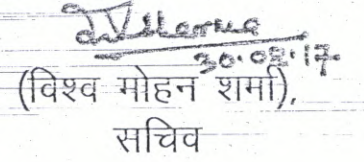 30.08.17.
(विश्व मोहन शर्मा),
सचिव